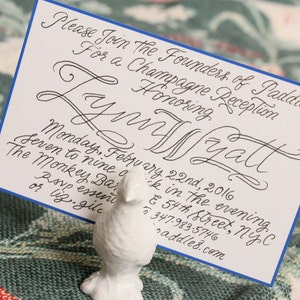 Please Join the Founders of Paddle
For a Champagne Reception
Honoring
Lynn Wyatt
Monday, February 22nd, 2016
Seven to nine o' k in the evening
The Monkey Bar E. 54th Street, NYC
RSVP essen 347.983.5746
or addle8.com